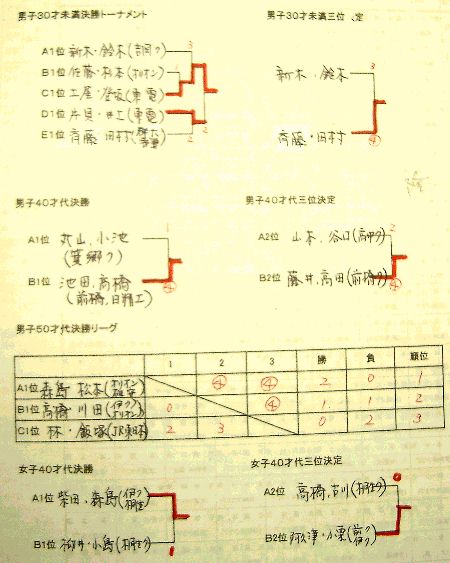 男子30才未満決勝トーナメント
男子30才未満三位 定
A1位 新木・鈴木
3
B1位 佐藤・松本(オリオン)
1
新木・鈴木
3
C1位 工尾・登坂(東電)
2
D1位 片貝・井上(東電)
E1位 斉藤 田村
2
2
斉藤・田村
④
男子40才代決勝
男子40才代三位決定
A1位 丸山、小池
(箕郷ク)
1
A2位 山本、谷口(高中ク)
2
B1位 池田、高橋
(前橋、日精工)
④
B2位 藤井、高田(前橋ク)
④
男子50才代決勝リーグ
1 2 3 勝 負 順位
A1位 森島 松本 ④ ④ 2 0 1
B1位 高橋・川田(伊ク オリオン) 0 ④ 1 1 2
C1位 林・飯塚(JR東日本) 2 3 0 2 3
女子40才代決勝
女子40才代三位決定
A1位 柴田、森島(伊ク 桐生)
A2位 高橋、吉川(桐生ク)
0
B1位 柳井・小島(桐生ク)
1
B2位 阿久津・小栗